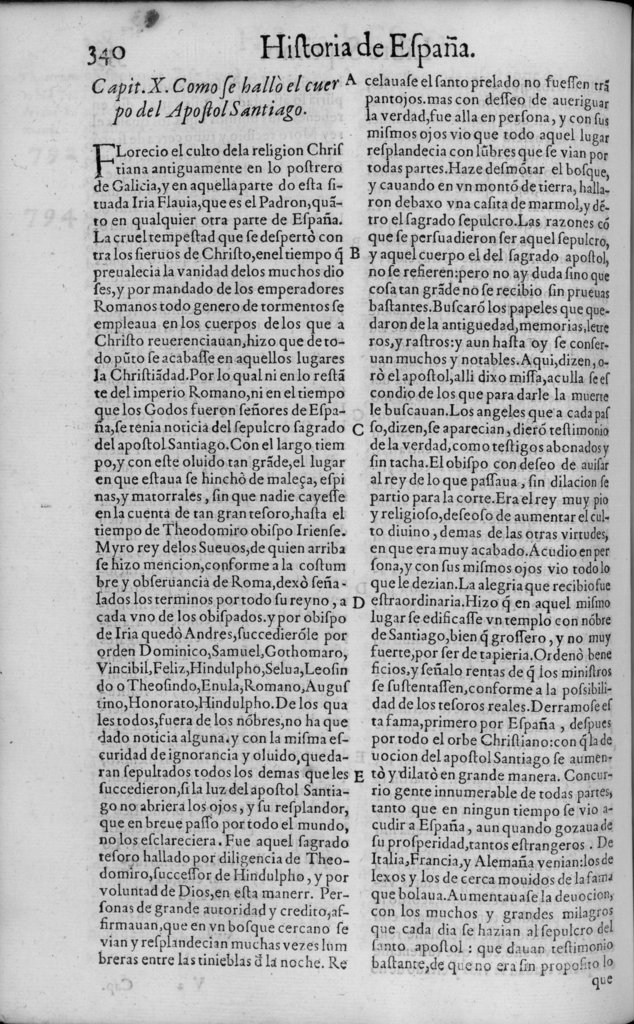 340 Hiſtoria de Eſpaña.
Capit. X. Como ſe hallò el cuer
po del Apoſtol Santiago.
FLorecio el culto dela religion Chriſ
tiana antiguamente en lo poſtrero
de Galicia, y en aquella parte do eſta ſi-
tuada Iria Flauia, que es el Padron, quã-
to en qualquier otra parte de Eſpaña.
La cruel tempeſtad que ſe deſpertò con
tra los ſieruos de Chriſto, enel tiempo q̃
preualecia la vanidad delos muchos dio
ſes, y por mandado de los emperadores
Romanos todo genero de tormentos ſe
empleaua en los cuerpos delos que a
Chriſto reuerenciauan, hizo que de to-
do pũto ſe acabaſſe en aquellos lugares
la Chriſtiãdad. Por lo qual ni en lo reſtã
te del imperio Romano, ni en el tiempo
que los Godos fueron ſeñores de Eſpa-
ña, ſe tenia noticia del ſepulcro ſagrado
del apoſtol Santiago. Con el largo tiem
po, y con eſte oluido tan grãde, el lugar
en que eſtaua ſe hinchò de maleça, eſpi
nas, y matorrales, ſin que nadie cayeſſe
en la cuenta de tan gran teſoro, haſta el
tiempo de Theodomiro obiſpo Irienſe.
Myro rey delos Sueuos, de quien arriba
ſe hizo mencion, conforme a la coſtum
bre y obſeruancia de Roma, dexò ſeña-
lados los terminos por todo ſu reyno, a
cada vno de los obiſpados. y por obiſpo
de Iria quedò Andres, ſuccedierõle por
orden Dominico, Samuel, Gothomaro,
Vincibil, Feliz, Hindulpho, Selua, Leoſin
do o Theoſindo, Enula, Romano, Auguſ
tino, Honorato, Hindulpho. De los qua
les todos, fuera de los nõbres, no ha que
dado noticia alguna. y con la miſma eſ-
curidad de ignorancia y oluido, queda-
ran ſepultados todos los demas que les
ſuccedieron, ſi la luz del apoſtol Santia-
go no abriera los ojos, y ſu reſplandor,
que en breue paſſo por todo el mundo,
no los eſclareciera. Fue aquel ſagrado
teſoro hallado por diligencia de Theo-
domiro, ſucceſſor de Hindulpho, y por
voluntad de Dios, en eſta manerr. Per-
ſonas de grande autoridad y credito, af-
firmauan, que en vn boſque cercano ſe
vian y reſplandecian muchas vezes lum
breras entre las tinieblas d̃ la noche. Re
A
B
C
D
E
celauaſe el ſanto prelado no fueſſen trã
pantojos. mas con deſſeo de aueriguar
la verdad, fue alla en perſona, y con ſus
miſmos ojos vio que todo aquel lugar
reſplandecia con lũbres que ſe vian por
todas partes. Haze deſmõtar el boſque,
y cauando en vn montõ de tierra, halla-
ron debaxo vna caſita de marmol, y dẽ-
tro el ſagrado ſepulcro. Las razones cõ
que ſe perſuadieron ſer aquel ſepulcro,
y aquel cuerpo el del ſagrado apoſtol,
no ſe refieren: pero no ay duda ſino que
coſa tan grãde no ſe recibio ſin prueuas
baſtantes. Buſcarõ los papeles que que-
daron de la antiguedad, memorias, letre
ros, y raſtros: y aun haſta oy ſe conſer-
uan muchos y notables. Aqui, dizen, o-
rò el apoſtol, alli dixo miſſa, aculla ſe eſ
condio de los que para darle la muerte
le buſcauan. Los angeles que a cada paſ
ſo, dizen, ſe aparecian, dierõ teſtimonio
de la verdad, como teſtigos abonados y
ſin tacha. El obiſpo con deſeo de auiſar
al rey de lo que paſſaua, ſin dilacion ſe
partio para la corte. Era el rey muy pio
y religioſo, deſeoſo de aumentar el cul-
to diuino, demas de las otras virtudes,
en que era muy acabado. Acudio en per
ſona, y con ſus miſmos ojos vio todo lo
que le dezian. La alegria que recibio fue
eſtraordinaria. Hizo q̃ en aquel miſmo
lugar ſe edificaſſe vn templo con nõbre
de Santiago, bien q̃ groſſero, y no muy
fuerte, por ſer de tapieria. Ordenò bene
ficios, y ſeñalo rentas de q̃ los miniſtros
ſe ſuſtentaſſen, conforme a la poſſibili-
dad de los teſoros reales. Derramoſe eſ
ta fama, primero por Eſpaña, deſpues
por todo el orbe Chriſtiano: con q̃ la de
uocion del apoſtol Santiago ſe aumen-
tò y dilatò en grande manera. Concur-
rio gente innumerable de todas partes,
tanto que en ningun tiempo ſe vio a-
cudir a Eſpaña, aun quando gozaua de
ſu proſperidad, tantos eſtrangeros. De
Italia, Francia, y Alemaña venian: los de
lexos y los de cerca mouidos de la fama
que bolaua. Aumentauaſe la deuocion,
con los muchos y grandes milagros
que cada dia ſe hazian al ſepulcro del
ſanto apoſtol: que dauan teſtimonio
baſtante, de que no era ſin propoſito lo
que